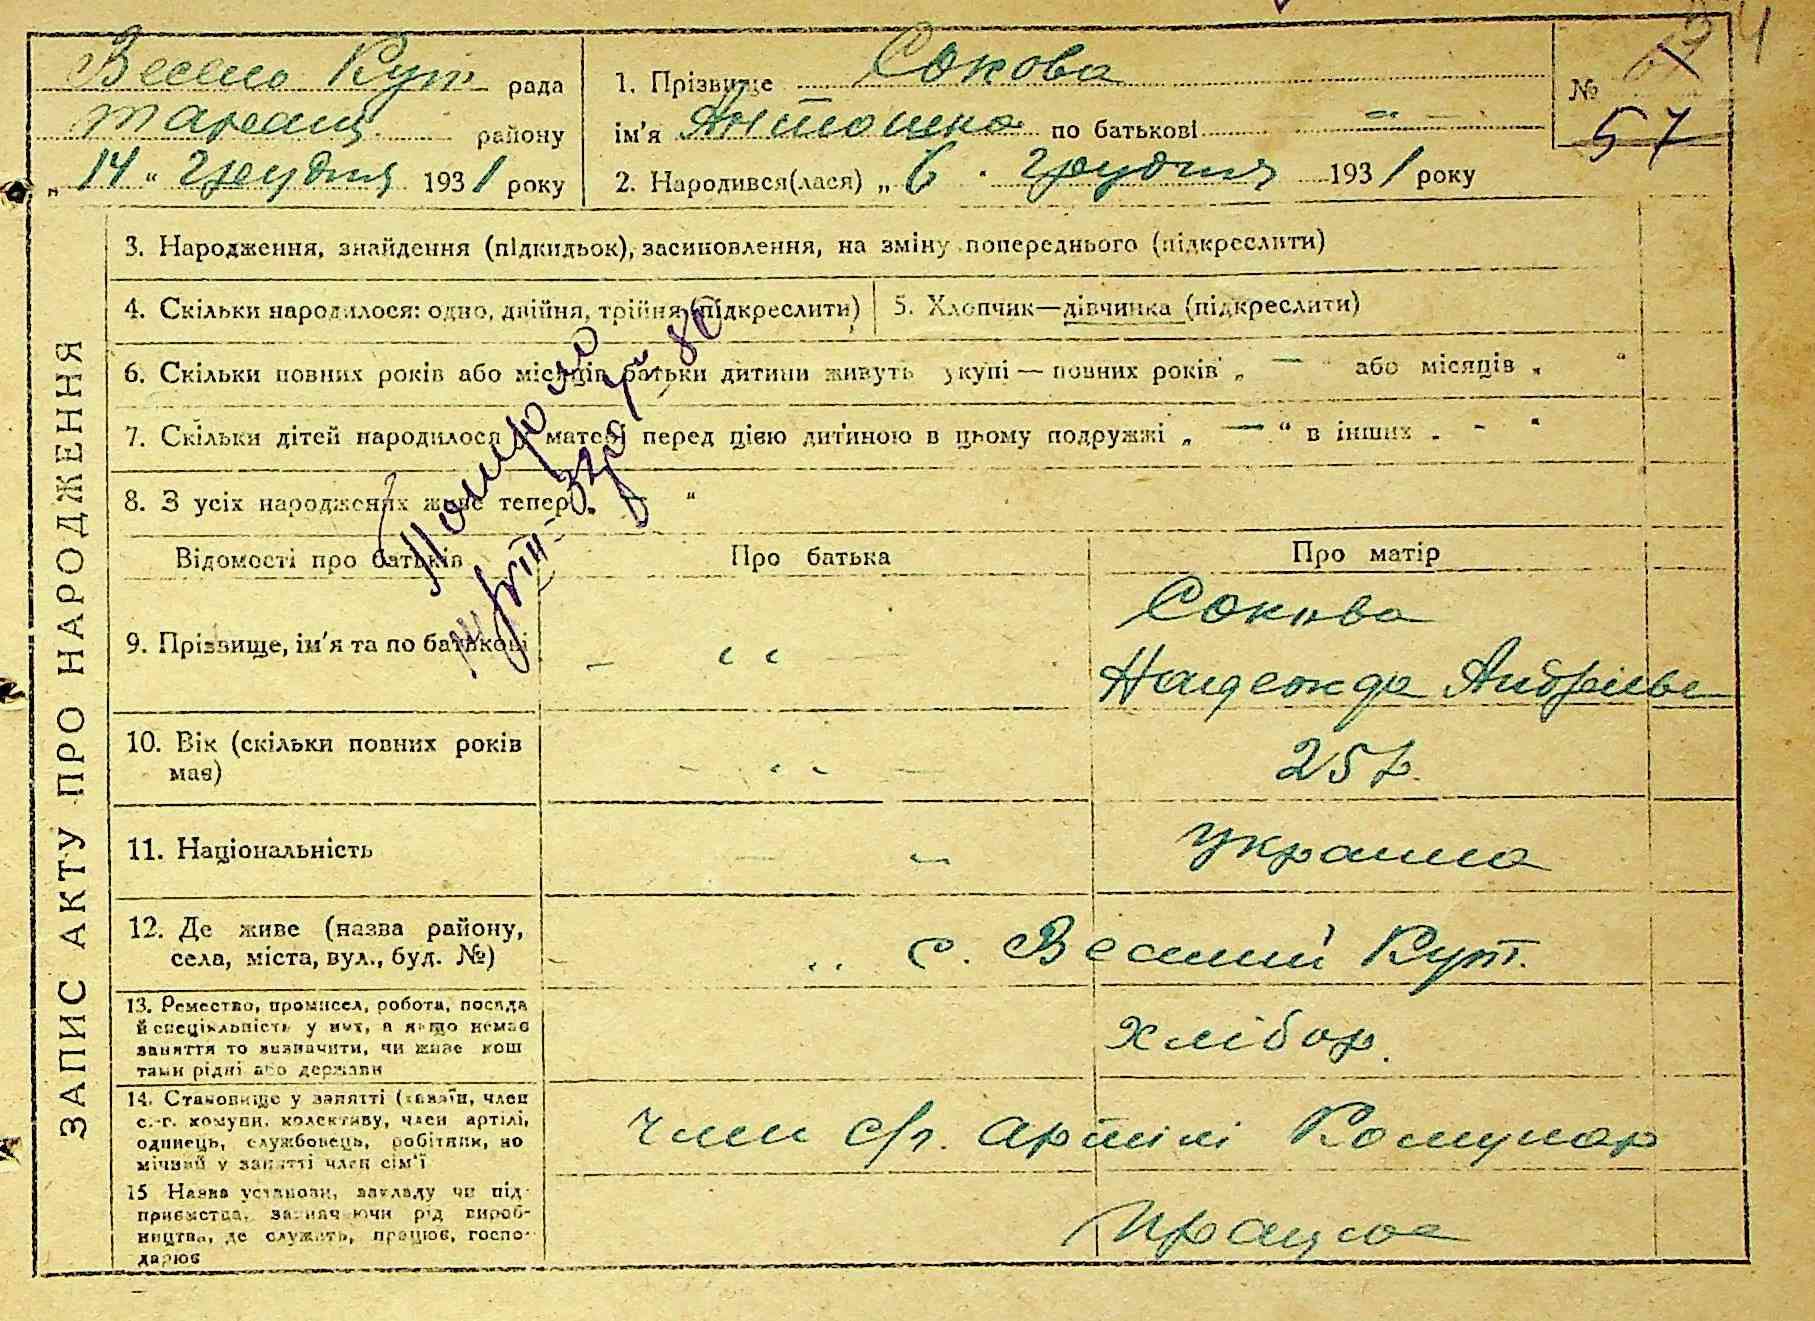 Весело Кут рада
Таращ. району
„ 14 “ грудня 1931 року
1. Прізвище Сокова
ім'я Антоніна по батькові — “ —
2. Народився(лася) „ 6 . грудня 1931 року
№
57
ЗАПИС АКТУ ПРО НАРОДЖЕННЯ
3. Народження, знайдення (підкидьок), засиновлення, на зміну попереднього (підкреслити)
4. Скільки народилося: одно, двійня, трійня (підкреслити)
5. Хлопчик—дівчинка (підкреслити)
6. Скільки повних років або місяців батьки дитини живуть укупі — повних років „ — “ або місяців „ “
7. Скільки дітей народилося у матері перед цією дитиною в цьому подружжі „ — “ в інших „ - “
8. З усіх народжених живе тепер „ — “
Відомості про батьків
Про батька
Про матір
9. Прізвище, ім'я та по батькові
Сокова
Надежда Андріївн
10. Вік (скільки повних років
має)
25 р.
11. Національність
україна
12. Де живе (назва району,
села, міста, вул., буд. №)
с. Веселий Кут.
13. Ремество, промисел, робота, посада
й спеціяльність у них, а якщо немає
заняття то визначити, чи живе кош
тами рідні або держави
хлібор.
14. Становище у занятті (хазяїн, член
с.-г. комуни, колективу, член артілі,
одинець, службовець, робітник, по
мічний у занятті член сім'ї
член с/г. артілі Комунар
15 Назва установи, закладу чи під-
приємства, зазначаючи рід вироб-
ництва, де служить, працює, госпо-
дарює
працює